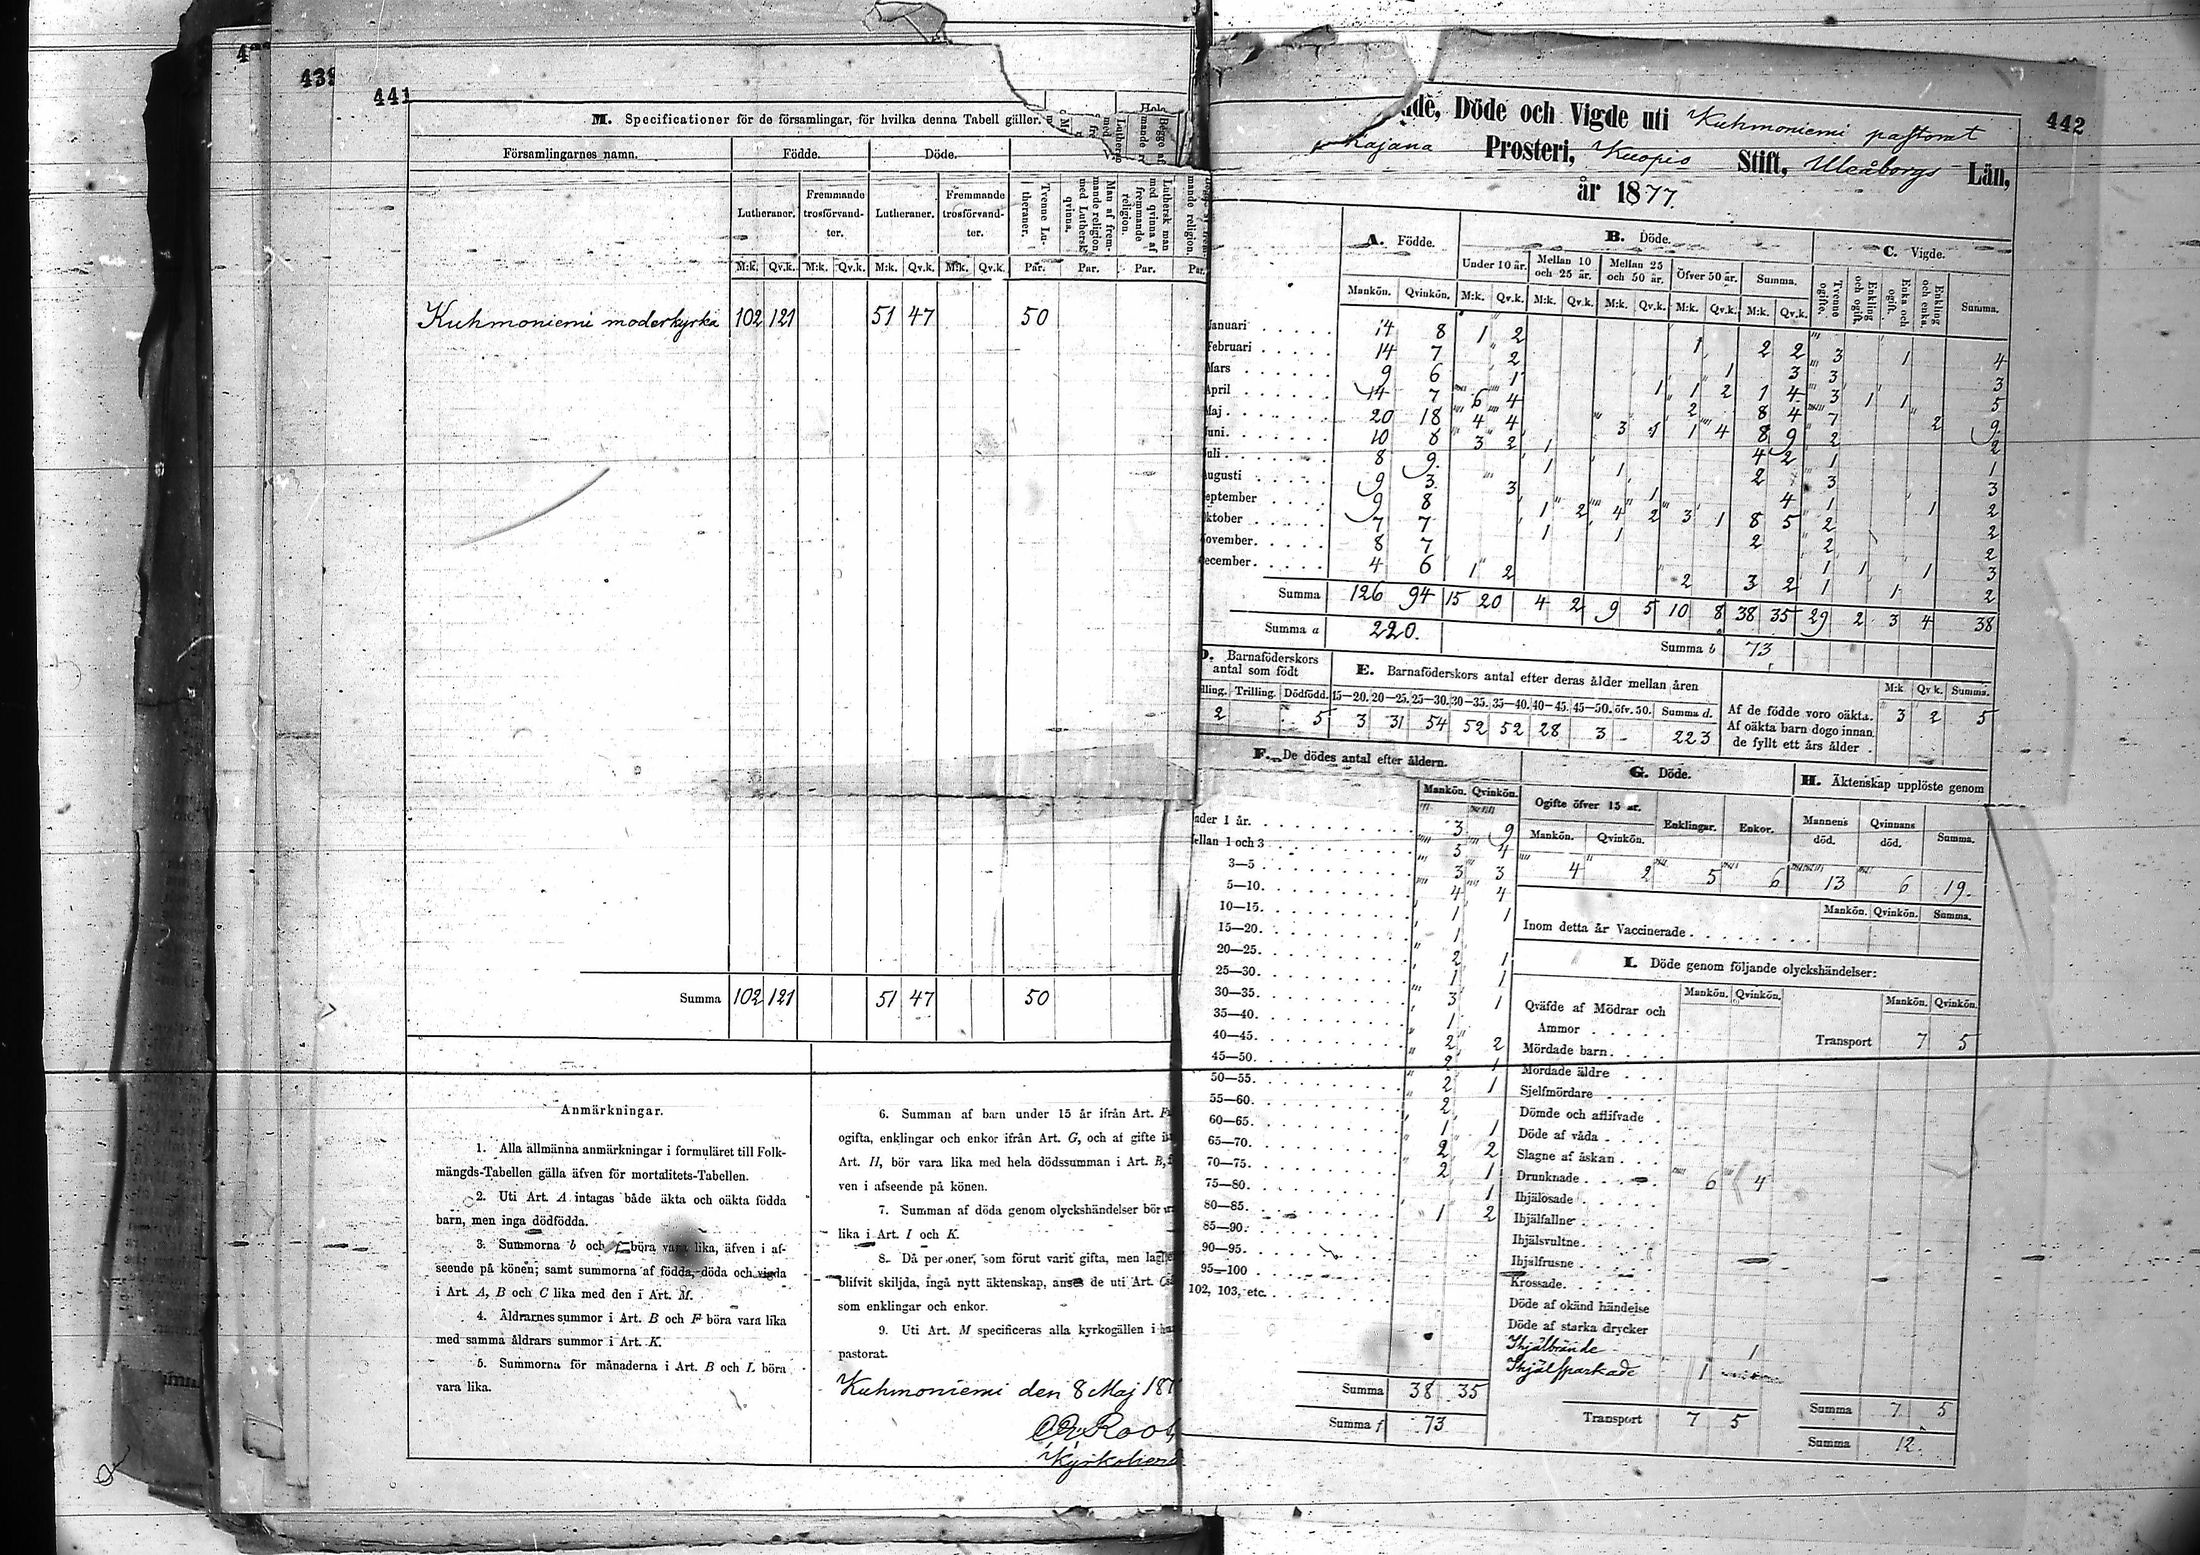 439
441
M. Specificationer för de församlingar, för hvilka denna Tabell gäller.
Församlingarnes namn. Födde. Döde.
Lutheraner. Fremmande trosförvandter. Lutheraner. Fremmande trosförvandter. Tvenne Lutheraner. Man af fremmande religion med Luthersk qvinna. Luthersk man med qvinna af fremmande religion.
M:k. Qv.k. M:k. Qv.k. M:k. Qv.k. M:k. Qv.k. Par. Par. Par. Par.
Kuhmoniemi moderkyrka 102 121 51 47 50
Summa 102 121 51 47 50
Anmärkningar.
1. Alla allmänna anmärkningar i formuläret till Folk-
mängds-Tabellen gälla äfven för mortalitets-Tabellen.
2. Uti Art. A intagas både äkta och oäkta födda
barn, men inga dödfödda.
3. Summorna b och f böra vara lika, äfven i af-
seende på könen; samt summorna af födda, döda och vigda
i Art. A, B och C lika med den i Art. M.
4. Åldrarnes summor i Art. B och F böra vara lika
med samma åldrars summor i Art. K.
5. Summorna för månaderna i Art. B och L böra
vara lika.
6. Summan af barn under 15 år ifrån Art. F
ogifta, enklingar och enkor ifrån Art. G, och af gifte
Art. H, bör vara lika med hela dödssumman i Art. B,
ven i afseende på könen.
7. Summan af döda genom olyckshändelser bör
lika i Art. I och K.
8. Då personer, som förut varit gifta, men
blifvit skiljda, ingå nytt äktenskap, anses de uti Art. C
som enklingar och enkor.
9. Uti Art. M specificeras alla kyrkogällen i
pastorat.
Kuhmoniemi den 8 Maj 187
Kyrkoherd
442
de, Döde och Vigde uti Kuhmoniemi pastorat
Kajana Prosteri, Kuopio Stift, Uleåborgs Län,
år 1877.
A. Födde. B. Döde. C. Vigde.
Under 10 år. Mellan 10 och 25 år. Mellan 25 och 50 år. Öfver 50 år. Summa. Tvenne ogifte. Enkling och ogift. Enka och ogift. Enkling och enka. Summa.
Mankön. Qvinkön. M:k. Qv.k. M:k. Qv.k. M:k. Qv.k. M:k. Qv.k. M:k. Qv.k.
Januari 14 8 1 2 1 2 2 3 1 4
Februari 14 7 2 1 3 3 3
Mars 9 6 1 1 1 2 1 4 3 1 1 5
April 14 7 6 4 2 8 4 7 2 9
Maj 20 18 4 4 3 1 1 4 8 9 2 2
Juni 10 8 3 2 1 4 2 1 1
Juli 8 9 1 1 2 3 3
Augusti 9 3 3 1 4 1 1 2
September 9 8 1 2 4 2 3 1 8 5 2 2
Oktober 7 7 1 1 2 2 2
November 8 7 1 1 1 3
December 4 6 1 2 2 3 2 1 1 2
Summa 126 94 15 20 4 2 9 5 10 8 38 35 29 2 3 4 38
Summa a 220. Summa b 73
D. Barnaföderskors antal som födt
E. Barnaföderskors antal efter deras ålder mellan åren
lling. Trilling. Dödfödd. 15—20. 20—25. 25—30. 30—35. 35—40. 40—45. 45—50. öfv. 50. Summa d.
2 5 3 31 54 52 52 28 3 - 223
M:k Qv.k. Summa.
Af de födde voro oäkta. 3 2 5
Af oäkta barn dogo innan
de fyllt ett års ålder
F. De dödes antal efter åldern.
Mankön. Qvinkön.
nder 1 år. 3 9
ellan 1 och 3 3 4
3—5 3 3
5—10. 4 4
10—15. 1 1
15—20. 1
20—25. 2 1
25—30. 1 1
30—35. 3 1
35—40. 1
40—45. 2 2
45—50. 2 1
50—55. 2 1
55—60. 2
60—65. 1 1
65—70. 2 2
70—75. 2 1
75—80. 1
80—85. 1 2
85—90.
90—95.
95—100
102, 103, etc.
Summa 38 35
Summa f 73
G. Döde.
Ogifte öfver 15 år. Enklingar. Enkor.
Mankön. Qvinkön.
4 2 5 6
H. Äktenskap upplöste genom
Mannens död. Qvinnans död. Summa.
13 6 19.
Mankön. Qvinkön. Summa.
Inom detta år Vaccinerade
I. Döde genom följande olyckshändelser:
Mankön. Qvinkön. Mankön. Qvinkön.
Qväfde af Mödrar och
Ammor
Transport 7 5
Mördade barn
Mördade äldre
Sjelfmördare
Dömde och aflifvade
Döde af våda
Slagne af åskan
Drunknade 6 4
Ihjälosade
Ihjälfallne
Ihjälsvultne
Ihjälfrusne
Krossade
Döde af okänd händelse
Döde af starka drycker
Ihjälbrände 1
Ihjälsparkade 1
Transport 7 5
Summa 7 5
Summa 12.